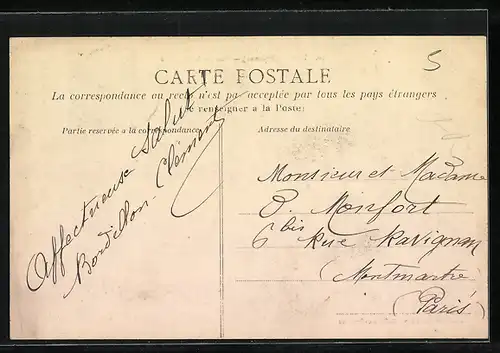 5
CARTE POSTALE
La correspondance au recto n'est pas acceptée par tous les pays étrangers
Se renseigner a la Poste
Partie reservée a la correspondance
Adresse du destinataire
Affectueuse Salut
Bordillon Clément
Monsieur et Madame
P. Monfort
6 bis Rue Ravignan
(Montmartre)
(Paris)